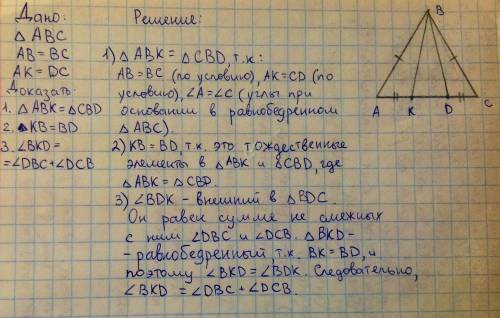 Дано:
△ ABC
AB = BC
AK = DC
Доказать:
1. △ ABK = △ CBD
2. KB = BD
3. ∠BKD =
= ∠DBC + ∠DCB
Решение:
1) △ ABK = △ CBD, т.к:
AB = BC (по условию), AK = CD (по
условию), ∠A = ∠C (углы при
основании в равнобедренном
△ ABC).
2) KB = BD, т.к. это тождественные
элементы в △ABK и △CBD, где
△ABK = △ CBD.
3) ∠BDK - внешний в △BDC.
Он равен сумме не смежных
с ним ∠DBC и ∠DCB. △BKD -
- равнобедренный т.к. BK = BD, и
поэтому ∠BKD = ∠BDK. Следовательно,
∠BKD = ∠DBC + ∠DCB.
B
A K D C